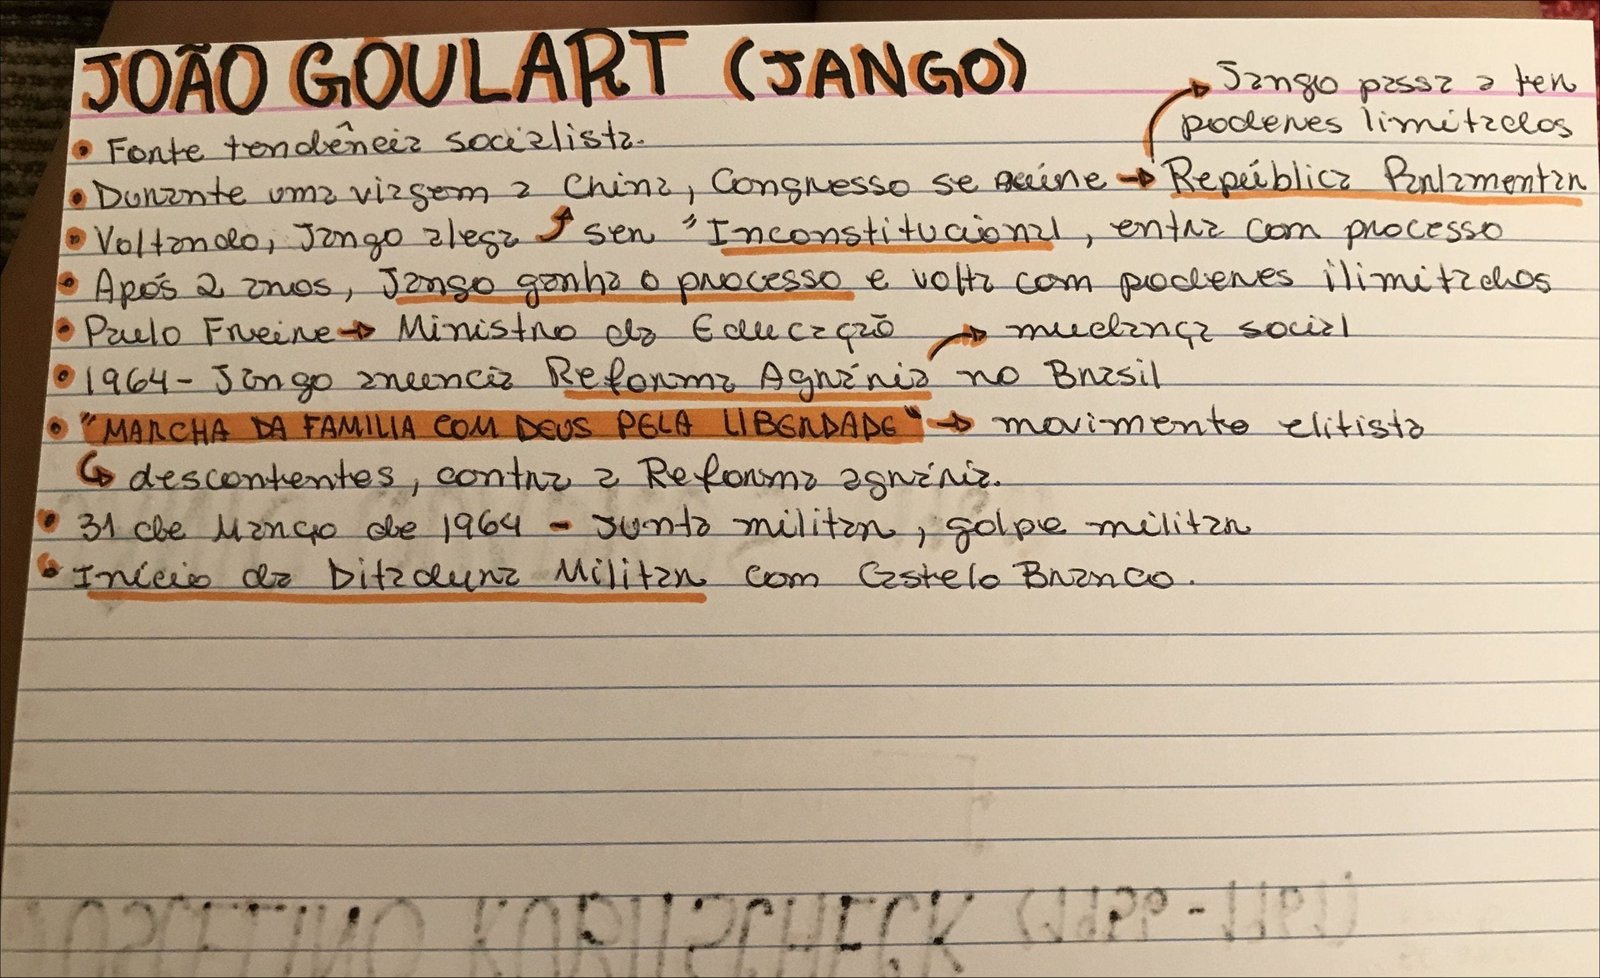 JOÃO GOULART (JANGO)
→ Jango passa a ter
poderes limitados
• Forte tendência socialista.
• Durante uma viagem a China, Congresso se reúne → República Parlamentar
• Voltando, Jango alega ser "Inconstitucional, entra com processo
• Após 2 anos, Jango ganha o processo e volta com poderes ilimitados
• Paulo Freire → Ministro da Educação → mudança social
• 1964 - Jango anuncia Reforma Agrária no Brasil
• "MARCHA DA FAMILIA COM DEUS PELA LIBERDADE" → movimento elitista
↳ descontentes, contra a Reforma agrária.
• 31 de Março de 1964 - Junta militar, golpe militar
• Início da Ditadura Militar com Castelo Branco.